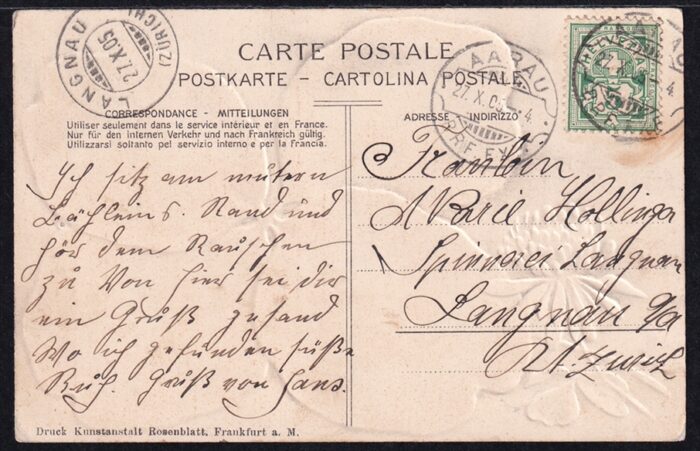 LANGNAU
27.X.05
(ZÜRICH)
CARTE POSTALE
POSTKARTE - CARTOLINA POSTALE
AARAU
27.X.05
BRF.EXP.
HELVETIA
CORRESPONDANCE - MITTEILUNGEN
Utiliser seulement dans le service intérieur et en France.
Nur für den internen Verkehr und nach Frankreich gültig.
Utilizzarsi soltanto pel servizio interno e per la Francia.
ADRESSE INDIRIZZO
Ich sitz am muntern
Bächleins Rand und
hör dem Rauschen
zu Von hier sei dir
ein Gruß gesand
Wo ich gefunden süße
Ruh. Gruß von Hans.
Fräulein
Marie Hollinger
Spinnerei Langnau
Langnau a/a
Kt. Zürich
Druck Kunstanstalt Rosenblatt, Frankfurt a. M.